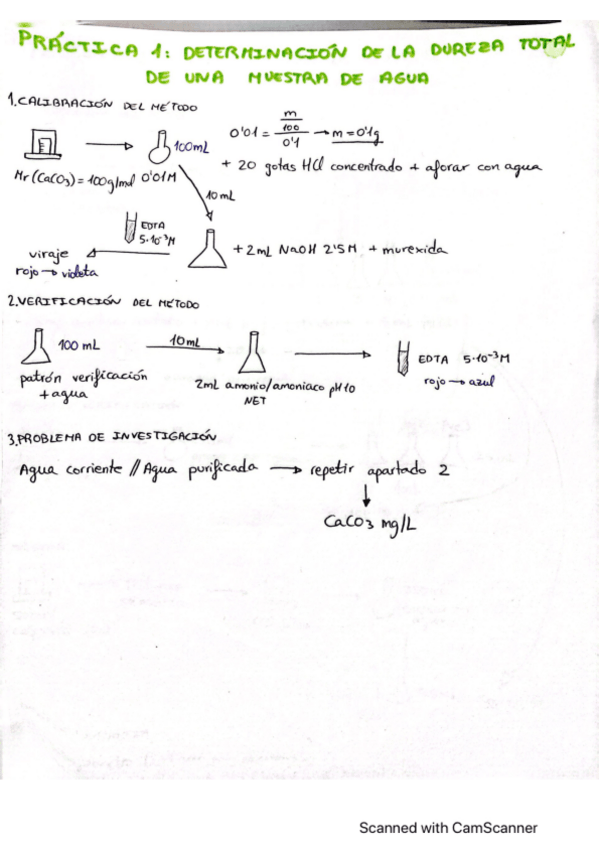 PRÁCTICA 1: DETERMINACIÓN DE LA DUREZA TOTAL
DE UNA MUESTRA DE AGUA
1. CALIBRACIÓN DEL MÉTODO
100mL
0'01 = m/100 / 0'1 → m = 0'1g
Mr (CaCO3) = 100g/mol 0'01M
+ 20 gotas HCl concentrado + aforar con agua
10 mL
EDTA
5·10⁻³M
viraje
rojo → violeta
+ 2mL NaOH 2'5M + murexida
2. VERIFICACIÓN DEL MÉTODO
100 mL
10mL
EDTA 5·10⁻³M
rojo → azul
patrón verificación
+ agua
2mL amonio/amoniaco pH10
NET
3. PROBLEMA DE INVESTIGACIÓN
Agua corriente // Agua purificada → repetir apartado 2
↓
CaCO3 mg/L
Scanned with CamScanner